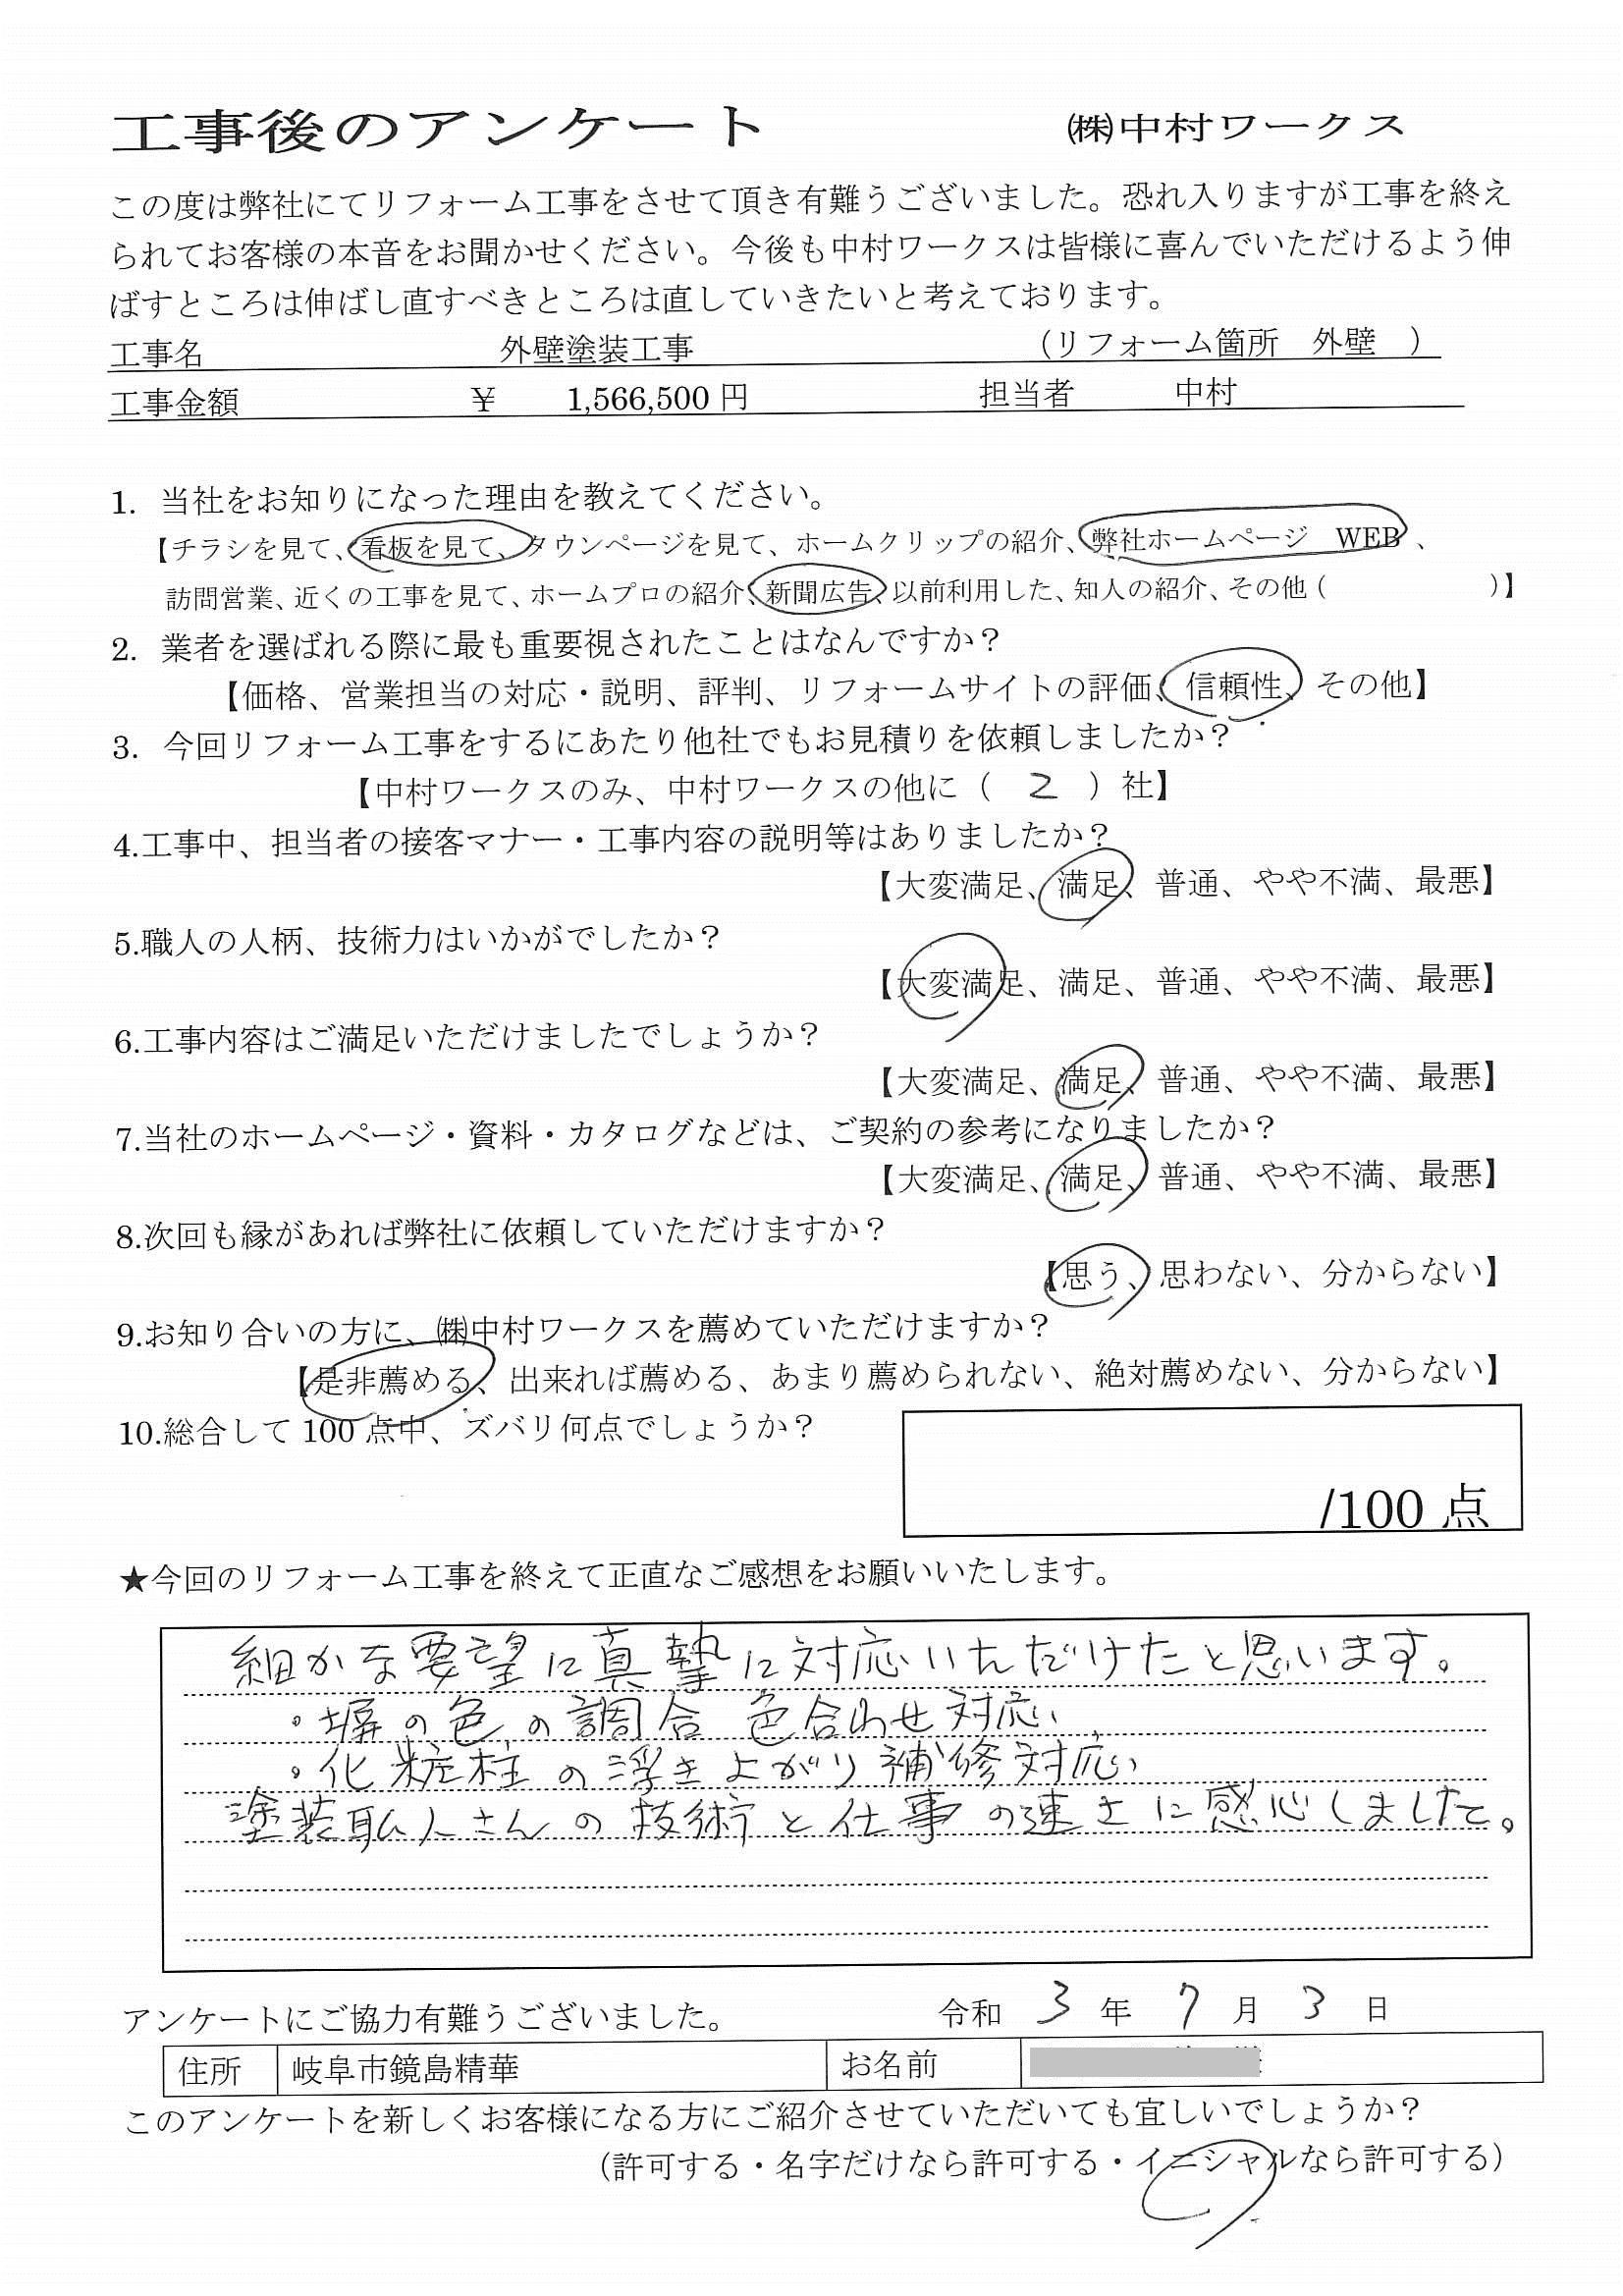 工事後のアンケート ㈱中村ワークス
この度は弊社にてリフォーム工事をさせて頂き有難うございました。恐れ入りますが工事を終え
られてお客様の本音をお聞かせください。今後も中村ワークスは皆様に喜んでいただけるよう伸
ばすところは伸ばし直すべきところは直していきたいと考えております。
工事名 外壁塗装工事 （リフォーム箇所 外壁 ）
工事金額 ￥ 1,566,500 円 担当者 中村
1. 当社をお知りになった理由を教えてください。
【チラシを見て、看板を見て、タウンページを見て、ホームクリップの紹介、弊社ホームページ WEB 、
訪問営業、近くの工事を見て、ホームプロの紹介、新聞広告、以前利用した、知人の紹介、その他（ ）】
2. 業者を選ばれる際に最も重要視されたことはなんですか？
【価格、営業担当の対応・説明、評判、リフォームサイトの評価、信頼性、その他】
3. 今回リフォーム工事をするにあたり他社でもお見積りを依頼しましたか？
【中村ワークスのみ、中村ワークスの他に（ 2 ）社】
4.工事中、担当者の接客マナー・工事内容の説明等はありましたか？
【大変満足、満足、普通、やや不満、最悪】
5.職人の人柄、技術力はいかがでしたか？
【大変満足、満足、普通、やや不満、最悪】
6.工事内容はご満足いただけましたでしょうか？
【大変満足、満足、普通、やや不満、最悪】
7.当社のホームページ・資料・カタログなどは、ご契約の参考になりましたか？
【大変満足、満足、普通、やや不満、最悪】
8.次回も縁があれば弊社に依頼していただけますか？
【思う、思わない、分からない】
9.お知り合いの方に、㈱中村ワークスを薦めていただけますか？
【是非薦める、出来れば薦める、あまり薦められない、絶対薦めない、分からない】
10.総合して 100 点中、ズバリ何点でしょうか？
/100 点
★今回のリフォーム工事を終えて正直なご感想をお願いいたします。
細かな要望に真摯に対応いただけたと思います。
・塀の色の調合 色合わせ対応
・化粧柱の浮き上がり補修対応
塗装職人さんの技術と仕事の速さに感心しました。
アンケートにご協力有難うございました。 令和 3 年 7 月 3 日
住所 岐阜市鏡島精華 お名前
このアンケートを新しくお客様になる方にご紹介させていただいても宜しいでしょうか？
（許可する・名字だけなら許可する・イニシャルなら許可する）